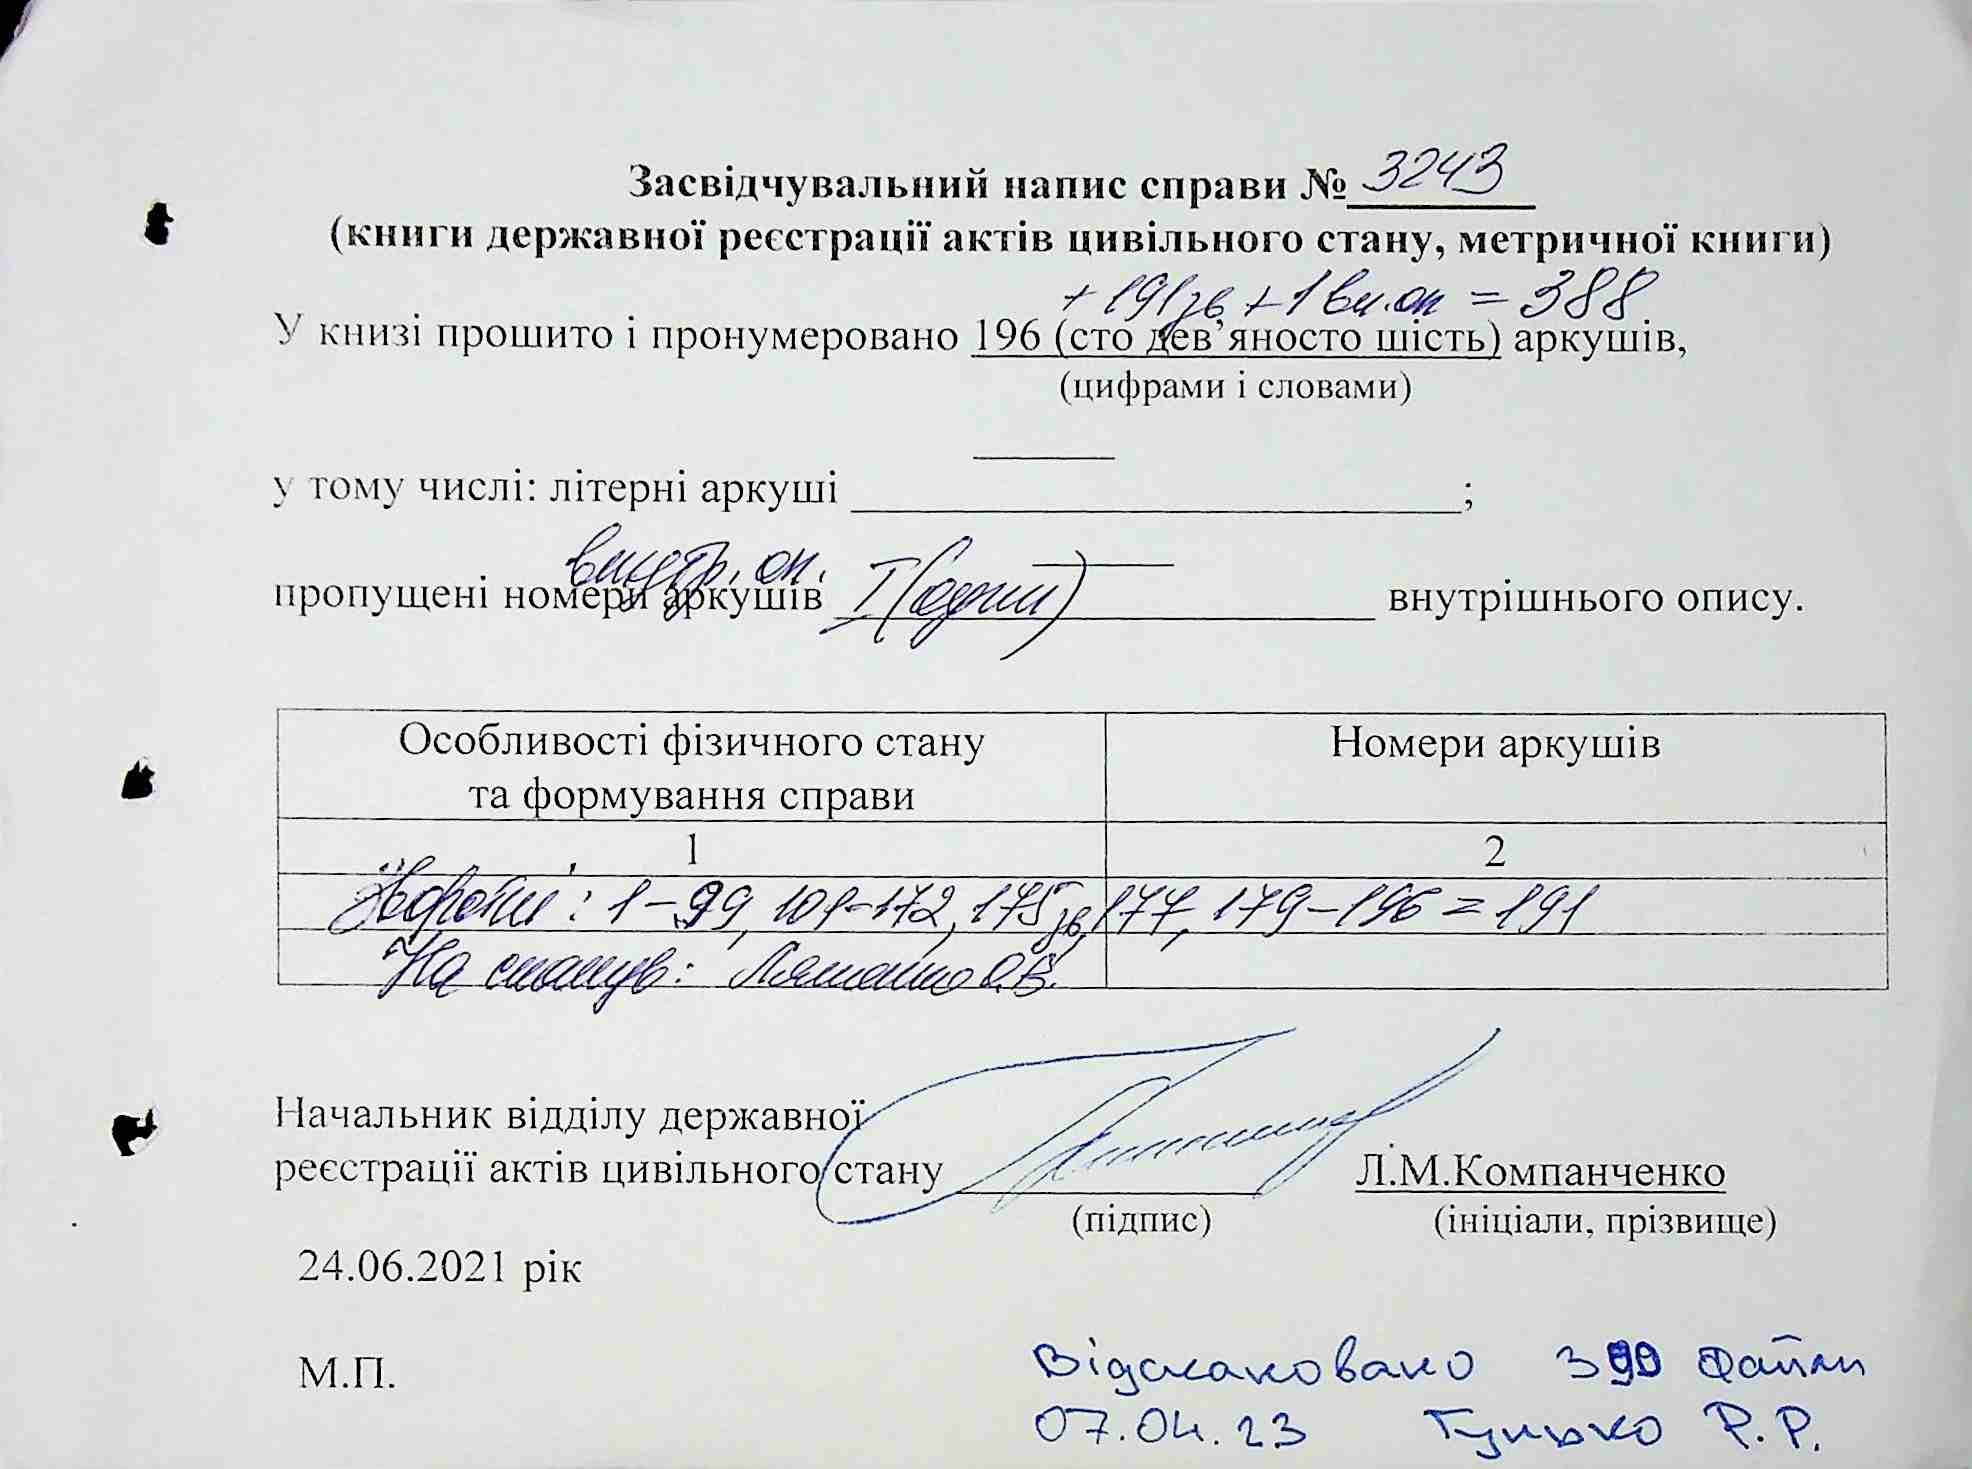 Засвідчувальний напис справи № 3243
(книги державної реєстрації актів цивільного стану, метричної книги)
+ 191 зв + 1 вн.оп = 388
У книзі прошито і пронумеровано 196 (сто дев’яносто шість) аркушів,
(цифрами і словами)
у тому числі: літерні аркуші ;
внутр. оп.
пропущені номери аркушів I (один) внутрішнього опису.
Особливості фізичного стану Номери аркушів
та формування справи
1 2
Звороти: 1-99, 101-172, 175зв, 177, 179-196 = 191
На сканув:
Начальник відділу державної
реєстрації актів цивільного стану Л.М.Компанченко
(підпис) (ініціали, прізвище)
24.06.2021 рік
М.П.
Відскановано 390 файли
07.04.23 Р.Р.